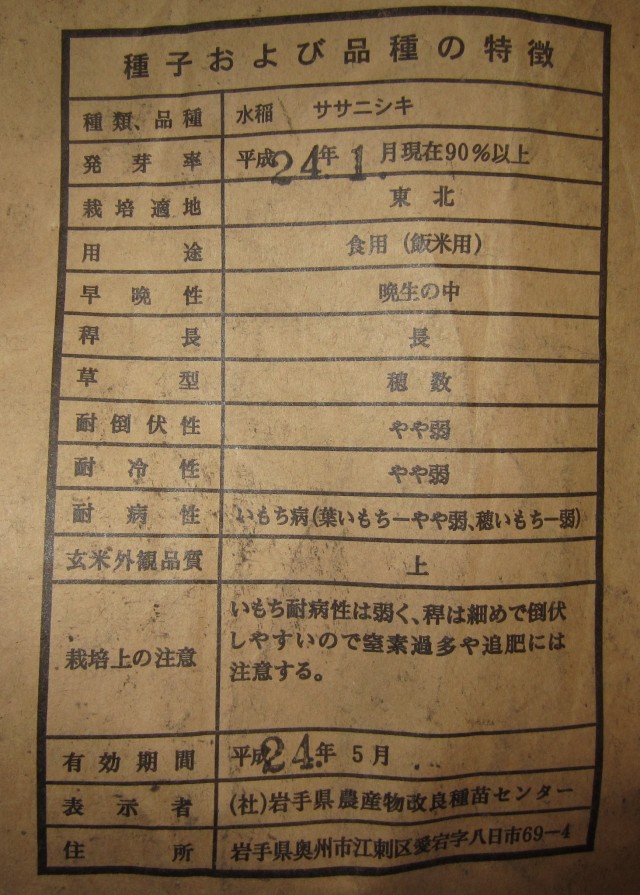 種子および品種の特徴
種類、品種 水稲 ササニシキ
発芽率 平成24年1.月現在90%以上
栽培適地 東北
用途 食用(飯米用)
早晩性 晩生の中
稈長 長
草型 穂数
耐倒伏性 やや弱
耐冷性 やや弱
耐病性 いもち病(葉いもちーやや弱、穂いもちー弱)
玄米外観品質 上
栽培上の注意 いもち耐病性は弱く、稈は細めで倒伏
しやすいので窒素過多や追肥には
注意する。
有効期間 平成24.年5月
表示者 (社)岩手県農産物改良種苗センター
住所 岩手県奥州市江刺区愛宕字八日市69-4